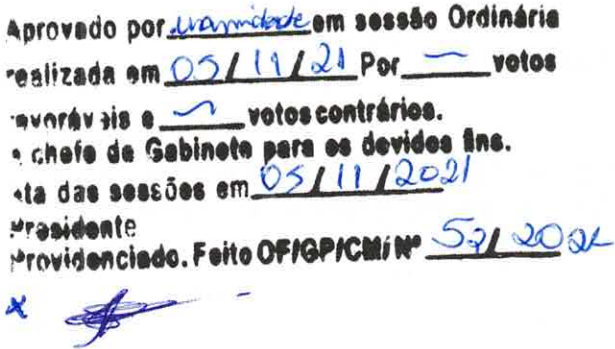 Aprovado por unanimidade em sessão Ordinária
realizada em 05/11/21 Por — votos
favoráveis e — votos contrários.
chefe de Gabinete para os devidos fins.
ta das sessões em 05/11/2021
Presidente
Providenciado. Feito OF/GP/CMI Nº 52/202
x